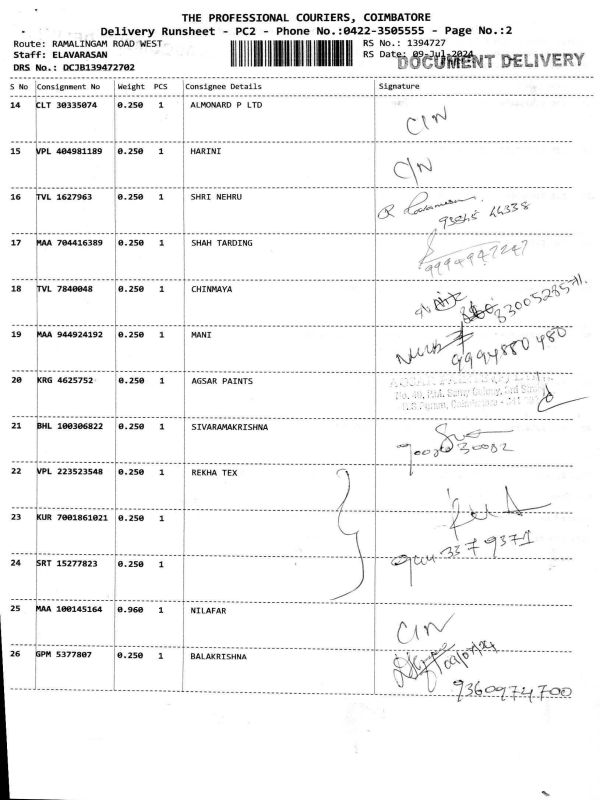 THE PROFESSIONAL COURIERS, COIMBATORE
Delivery Runsheet - PC2 - Phone No.:0422-3505555 - Page No.:2
Route: RAMALINGAM ROAD WEST RS No.: 1394727
Staff: ELAVARASAN RS Date: 09-Jul-2024
DOCUMENT DELIVERY
DRS No.: DCJB139472702
S No Consignment No Weight PCS Consignee Details Signature
14 CLT 30335074 0.250 1 ALMONARD P LTD
CIN
15 VPL 404981189 0.250 1 HARINI
C/N
16 TVL 1627963 0.250 1 SHRI NEHRU
44338
17 MAA 704416389 0.250 1 SHAH TARDING
9994947247
18 TVL 7840048 0.250 1 CHINMAYA
19 MAA 944924192 0.250 1 MANI
9994880480
20 KRG 4625752 0.250 1 AGSAR PAINTS
21 BHL 100306822 0.250 1 SIVARAMAKRISHNA
22 VPL 223523548 0.250 1 REKHA TEX
23 KUR 7001861021 0.250 1
24 SRT 15277823 0.250 1
25 MAA 100145164 0.960 1 NILAFAR
CIN
26 GPM 5377807 0.250 1 BALAKRISHNA
09/07/24
9360974700